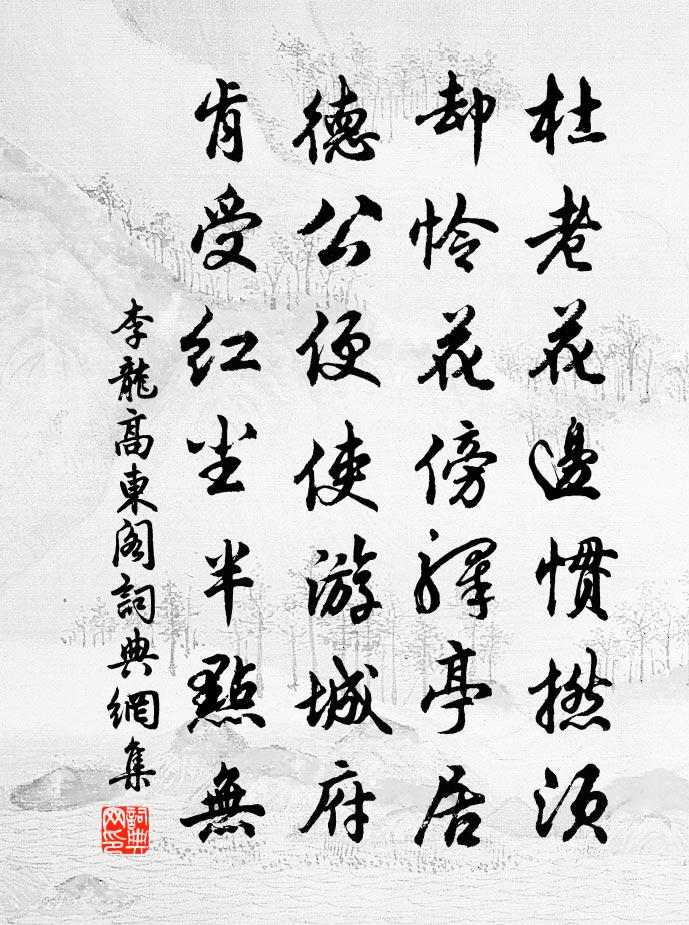 杜老花邊慣撚須
却怜花傍驛亭居
德公便使游城府
肯受紅塵半點無
李龍高東閣詞典網集
詞典網印